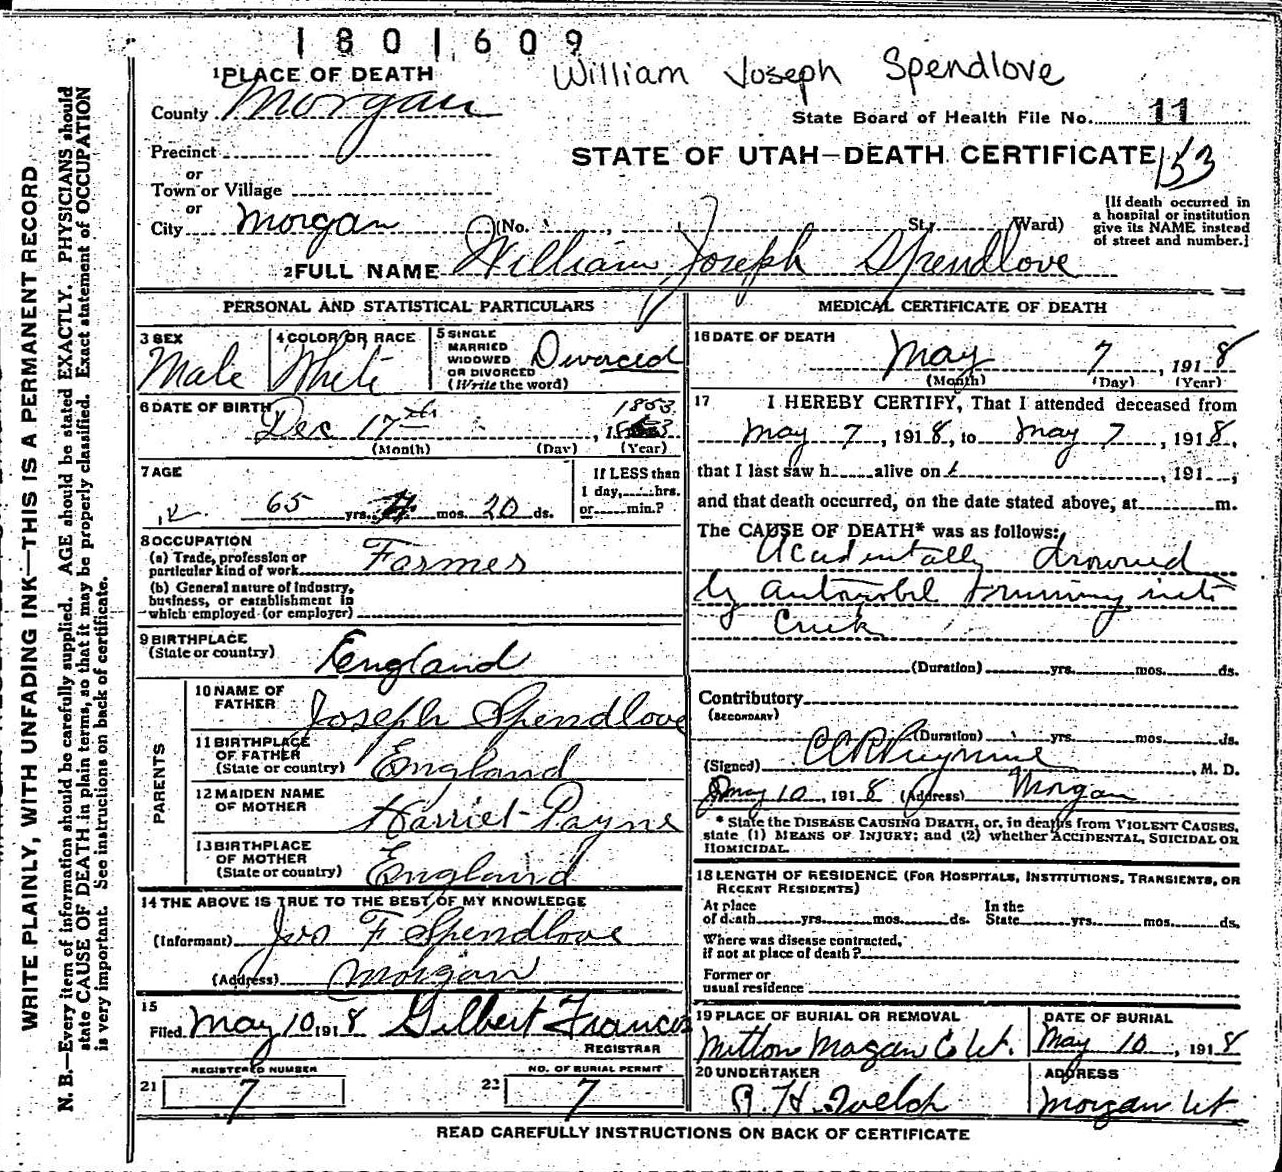 1801609
William Joseph Spendlove
1 PLACE OF DEATH
County Morgan
State Board of Health File No. 11
Precinct
STATE OF UTAH—DEATH CERTIFICATE 153
or
Town or Village
or
City Morgan (No. , St., Ward)
[If death occurred in
a hospital or institution
give its NAME instead
of street and number.]
2 FULL NAME William Joseph Spendlove
PERSONAL AND STATISTICAL PARTICULARS
3 SEX
Male
4 COLOR OR RACE
White
5 SINGLE
MARRIED
WIDOWED
OR DIVORCED
(Write the word)
Divorced
6 DATE OF BIRTH
1853
Dec 17th , 1
(Month) (Day) (Year)
7 AGE
65 yrs. 4 mos. 20 ds.
If LESS than
1 day, hrs.
or min.?
8 OCCUPATION
(a) Trade, profession or
particular kind of work Farmer
(b) General nature of industry,
business, or establishment in
which employed (or employer)
9 BIRTHPLACE
(State or country) England
PARENTS
10 NAME OF
FATHER Joseph Spendlove
11 BIRTHPLACE
OF FATHER
(State or country) England
12 MAIDEN NAME
OF MOTHER Harriet Payne
13 BIRTHPLACE
OF MOTHER
(State or country) England
14 THE ABOVE IS TRUE TO THE BEST OF MY KNOWLEDGE
(Informant) Jos F Spendlove
(Address) Morgan
15
Filed May 10 1918 Gilbert Francis
REGISTRAR
21 REGISTERED NUMBER
7
22 NO. OF BURIAL PERMIT
7
MEDICAL CERTIFICATE OF DEATH
16 DATE OF DEATH
May 7, 1918
(Month) (Day) (Year)
17 I HEREBY CERTIFY, That I attended deceased from
May 7, 1918, to May 7, 1918,
that I last saw h alive on , 191 ,
and that death occurred, on the date stated above, at m.
The CAUSE OF DEATH* was as follows:
Accidentally drowned
by automobil into
Creek
(Duration) yrs. mos. ds.
Contributory
(SECONDARY)
(Duration) yrs. mos. ds.
(Signed) , M. D.
May 10, 1918 (Address) Morgan
* State the DISEASE CAUSING DEATH, or, in deaths from VIOLENT CAUSES,
state (1) MEANS OF INJURY; and (2) whether ACCIDENTAL, SUICIDAL OR
HOMICIDAL.
18 LENGTH OF RESIDENCE (FOR HOSPITALS, INSTITUTIONS, TRANSIENTS, OR
RECENT RESIDENTS)
At place
of death yrs. mos. ds.
In the
State yrs. mos. ds.
Where was disease contracted,
if not at place of death?
Former or
usual residence
19 PLACE OF BURIAL OR REMOVAL
Milton Morgan Co Ut.
DATE OF BURIAL
May 10, 1918
20 UNDERTAKER
H. Welch
ADDRESS
Morgan Ut
READ CAREFULLY INSTRUCTIONS ON BACK OF CERTIFICATE
WRITE PLAINLY, WITH UNFADING INK—THIS IS A PERMANENT RECORD
N. B.—Every item of information should be carefully supplied. AGE should be stated EXACTLY. PHYSICIANS should
state CAUSE OF DEATH in plain terms, so that it may be properly classified. Exact statement of OCCUPATION
is very important. See instructions on back of certificate.